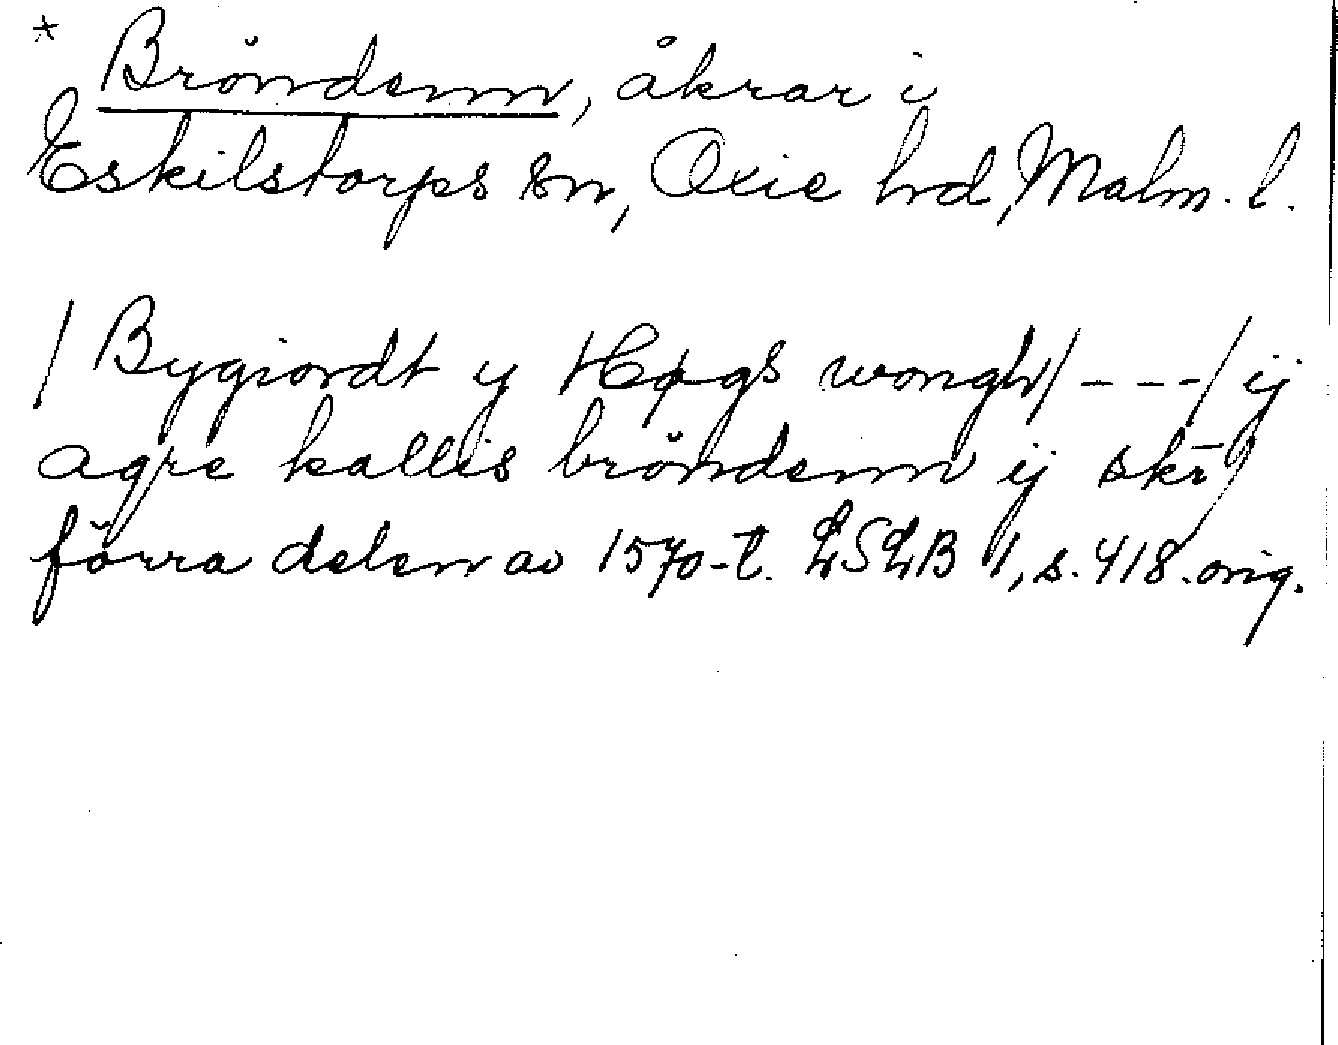 * Bröndenn, åkrar i
Eskilstorps sn, Oxie hd, Malm. l.
/Bygiordt y Høgs wongh/---/ij
agre kallis bröndenn ij skr̄/
förra delen av 1570-t. LSLB 1, s. 418. orig.